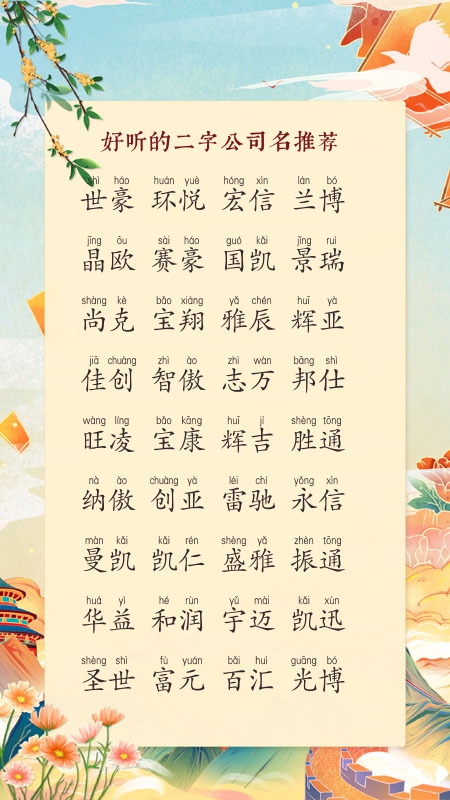 好听的二字公司名推荐
shì háo huán yuè hóng xìn lán bó
世豪 环悦 宏信 兰博
jīng ōu sài háo guó kǎi jǐng ruì
晶欧 赛豪 国凯 景瑞
shàng kè bǎo xiáng yǎ chén huī yà
尚克 宝翔 雅辰 辉亚
jiā chuàng zhì ào zhì wàn bāng shì
佳创 智傲 志万 邦仕
wàng líng bǎo kāng huī jí shèng tōng
旺凌 宝康 辉吉 胜通
nà ào chuàng yà léi chí yǒng xìn
纳傲 创亚 雷驰 永信
màn kǎi kǎi rén shèng yǎ zhèn tōng
曼凯 凯仁 盛雅 振通
huá yì hé rùn yǔ mài kǎi xùn
华益 和润 宇迈 凯迅
shèng shì fù yuán bǎi huì guāng bó
圣世 富元 百汇 光博